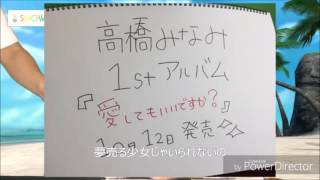 SHOW
高橋みなみ
1stアルバム
『愛してもいいですか?』
10月12日発売
夢売る少女じゃいられないの
by PowerDirector